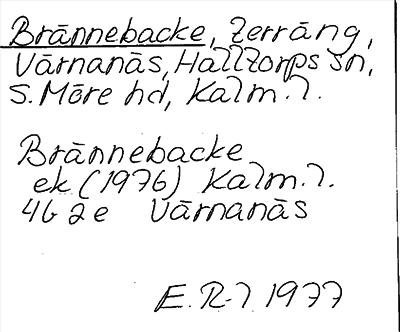 Brännebacke, terräng,
Värnanäs, Halltorps sn,
S. Möre hd, Kalm. l.
Brännebacke
ek (1976) Kalm. l.
4G 2e Värnanäs
E. R-l 1977